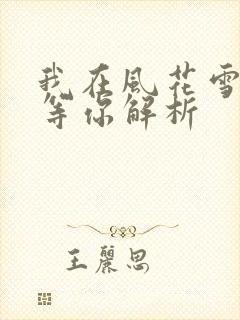 我在風花雪
等你解析
王麗思